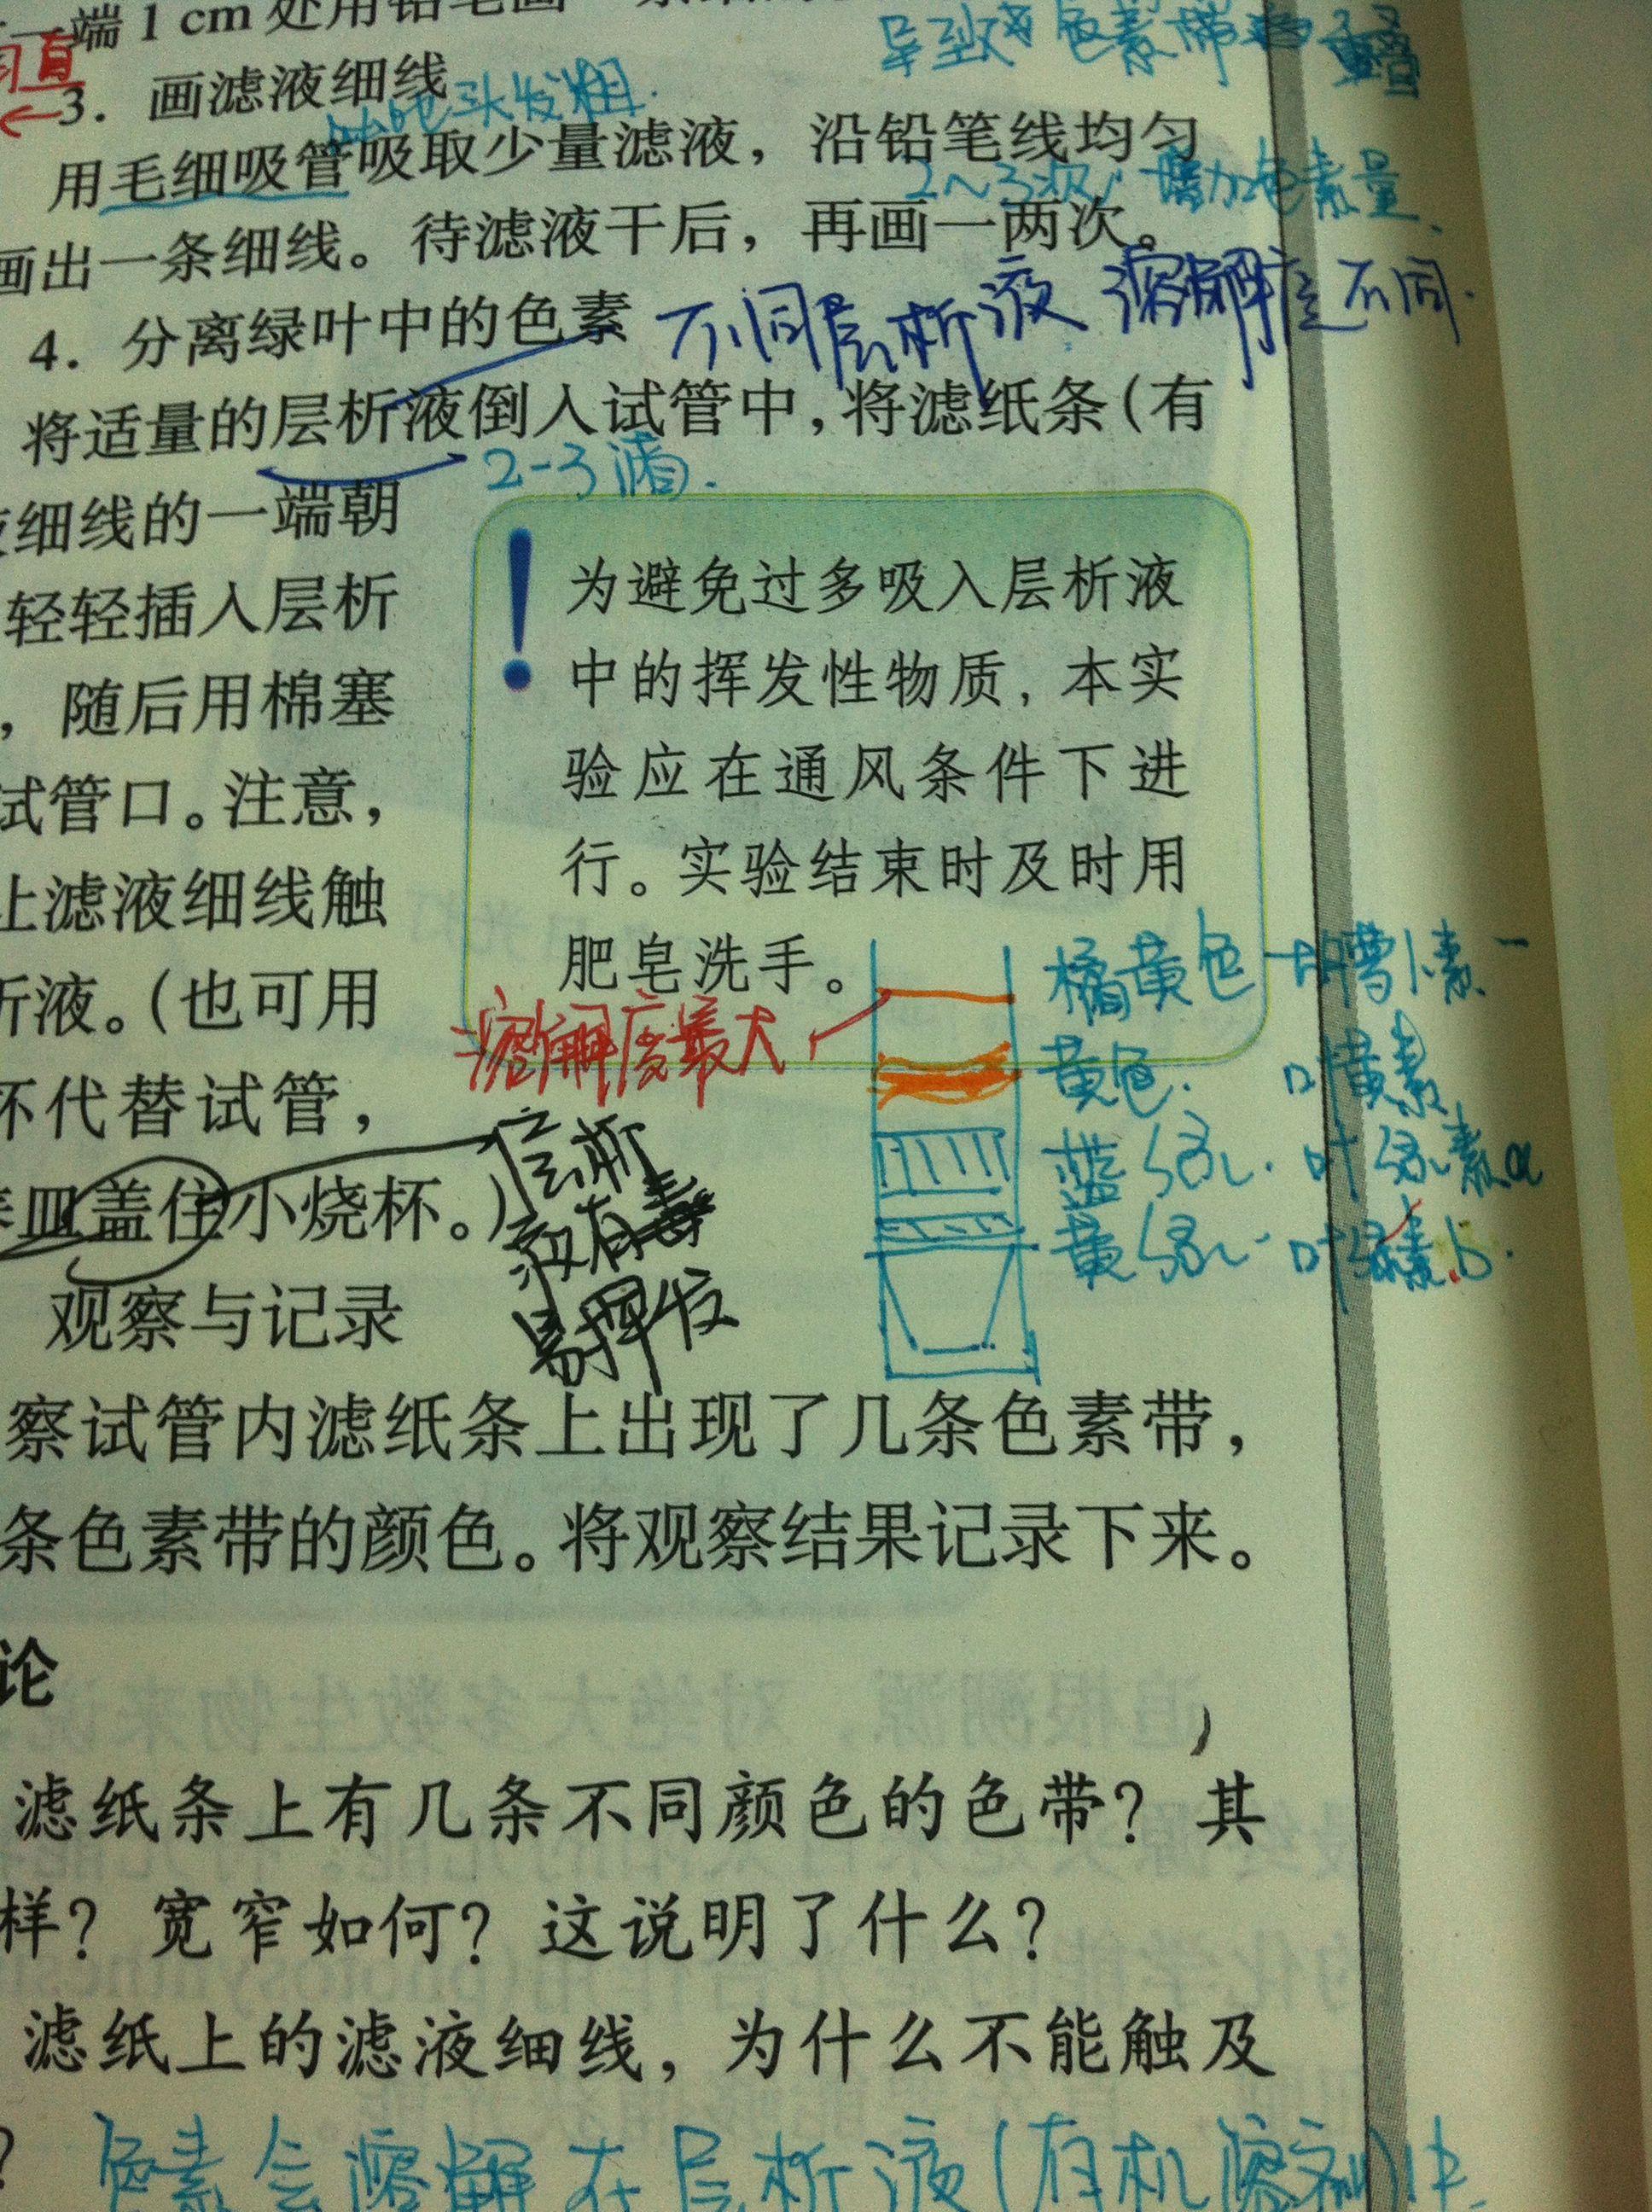 端 1 cm 处用铅笔画一条
导致 色素带 重叠
直
3. 画滤液细线
比头发粗.
用毛细吸管吸取少量滤液，沿铅笔线均匀
2~3次, 增加色素量.
画出一条细线。待滤液干后，再画一两次。
4. 分离绿叶中的色素
不同层析液 溶解度不同.
将适量的层析液倒入试管中，将滤纸条（有
2-3滴.
细线的一端朝
轻轻插入层析
，随后用棉塞
试管口。注意，
让滤液细线触
析液。（也可用
杯代替试管，
皿盖住小烧杯。）
!
为避免过多吸入层析液
中的挥发性物质，本实
验应在通风条件下进
行。实验结束时及时用
肥皂洗手。
溶解度最大
橘黄色 胡萝卜素
黄色. 叶黄素
蓝绿. 叶绿素a
黄绿. 叶绿素b.
层析
液有毒
易挥发
观察与记录
察试管内滤纸条上出现了几条色素带，
条色素带的颜色。将观察结果记录下来。
论
滤纸条上有几条不同颜色的色带？其
样？宽窄如何？这说明了什么？
滤纸上的滤液细线，为什么不能触及
？
色素会溶解在层析液(有机溶剂)中